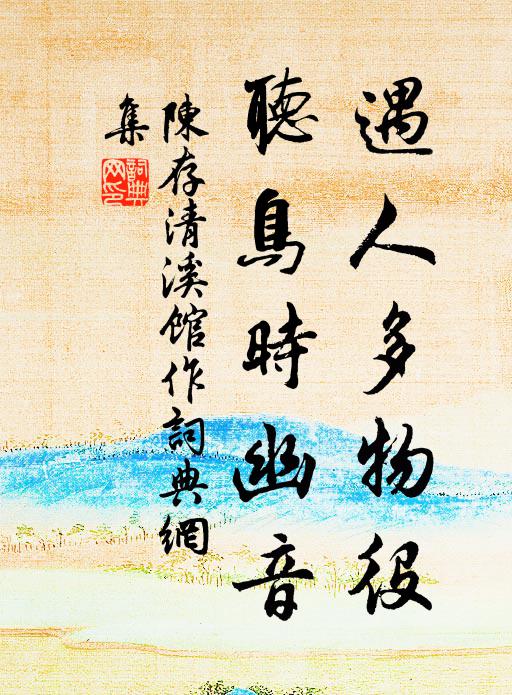 遇人多物役
聽鳥時幽音
陳存清溪館作詞典網
集
詞典
网印